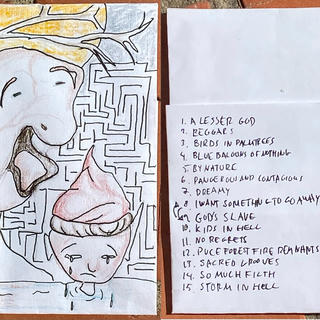 1. A LESSER GOD
2. BEGGARS
3. BIRDS IN PALMTREES
4. BLUE BALOONS OF NOTHING
5. BY NATURE
6. DANGEROUS AND CONTAGIOUS
7. DREAMY
8. I WANT SOMETHING TO GO AWAY
9. GOD'S SLAVE
10. KIDS IN HELL
11. NO REGRETS
12. PUCE FOREST FIRE REMNANTS
13. SACRED GROOVES
14. SO MUCH FILTH
15. STORM IN HELL